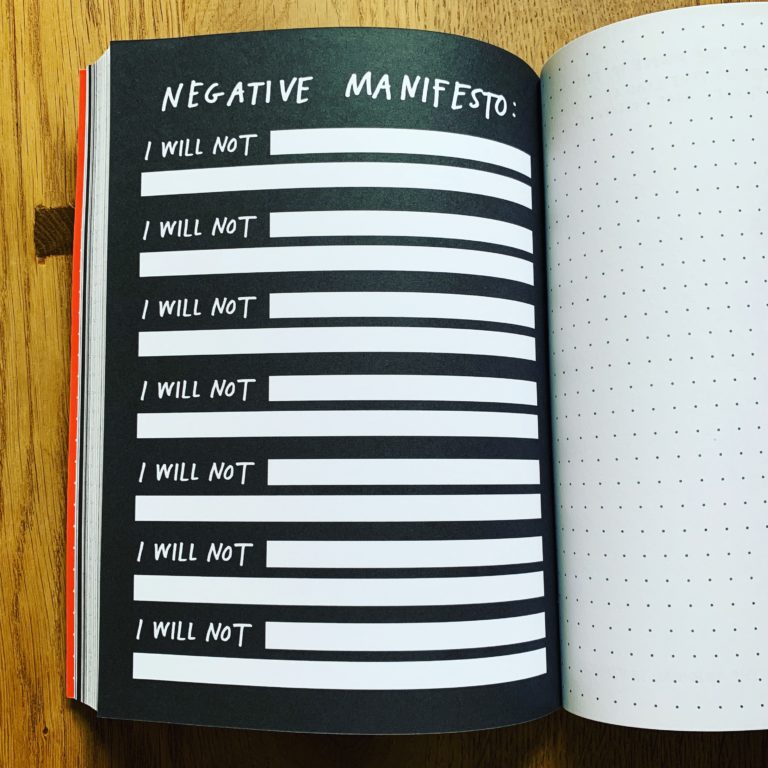 NEGATIVE MANIFESTO:
I WILL NOT
I WILL NOT
I WILL NOT
I WILL NOT
I WILL NOT
I WILL NOT
I WILL NOT